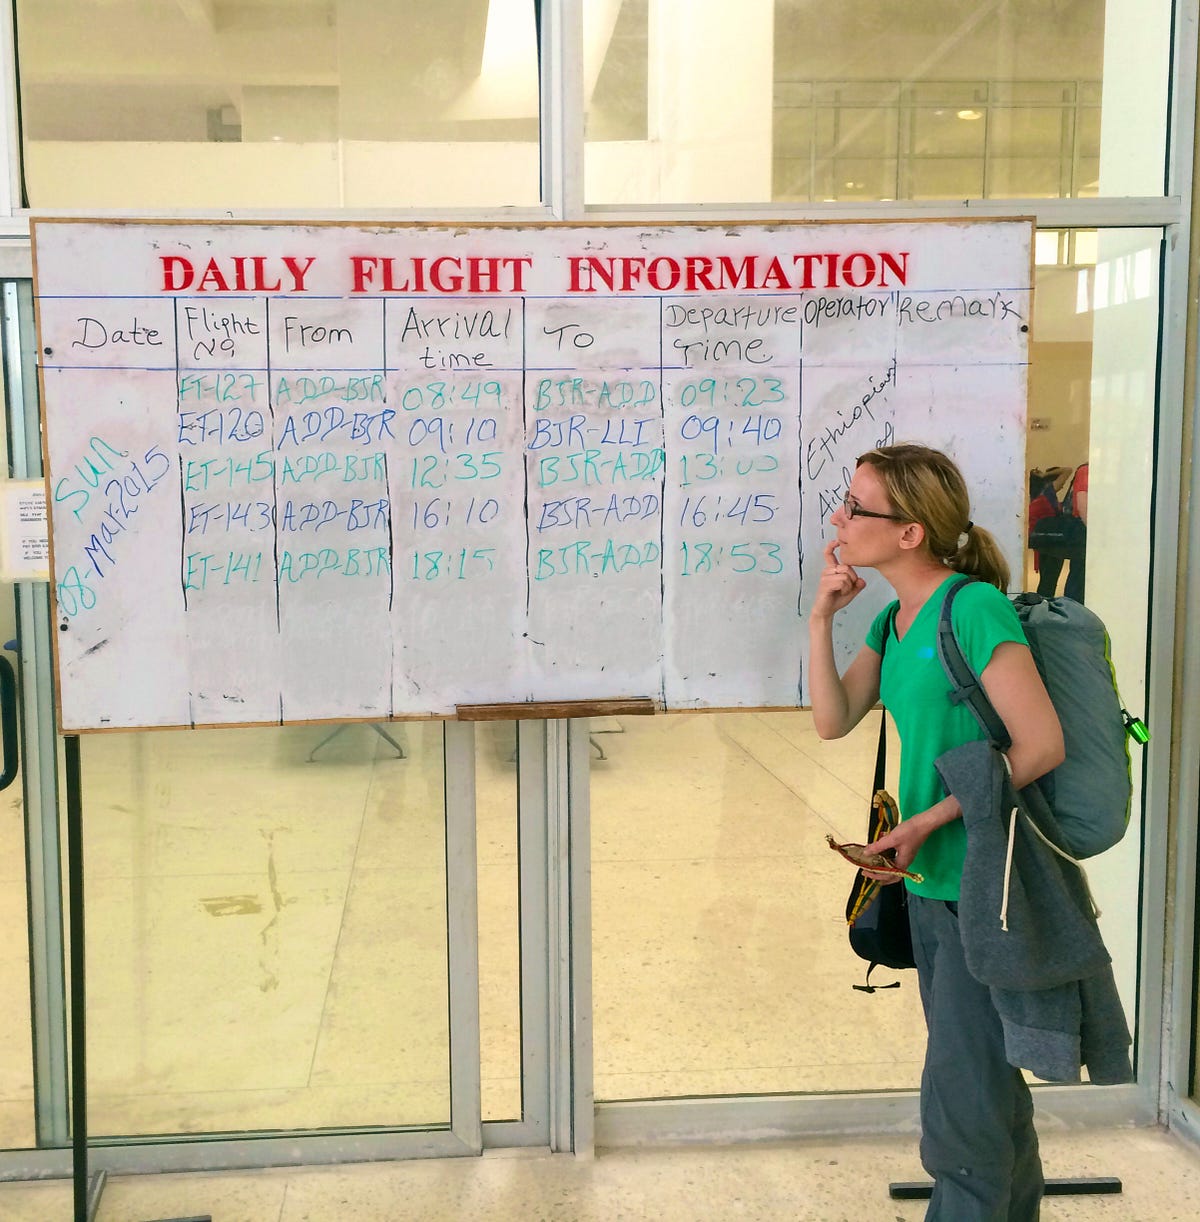 DAILY FLIGHT INFORMATION
Date Flight No, From Arrival time To Departure Time Operator Remark
ET-127 ADD-BJR 08:49 BJR-ADD 09:23
ET-120 ADD-BJR 09:10 BJR-LLI 09:40
ET-145 ADD-BJR 12:35 BJR-ADD 13:00
ET-143 ADD-BJR 16:10 BJR-ADD 16:45
ET-141 ADD-BJR 18:15 BJR-ADD 18:53
Sun
08-Mar-2015
Ethiopian